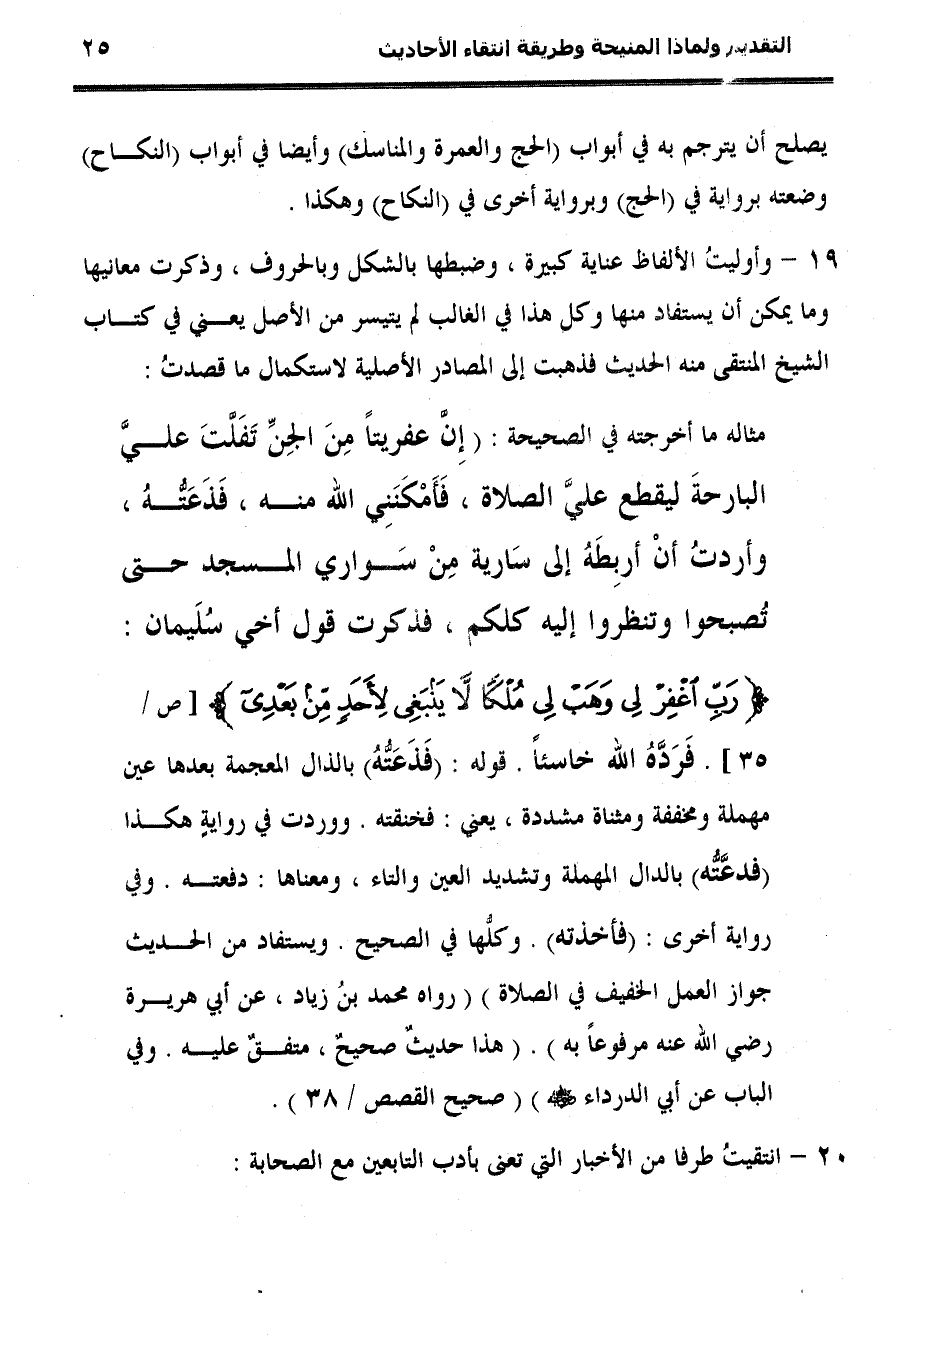 التقديم ولماذا المنيحة وطريقة انتقاء الأحاديث ٢٥
يصلح أن يترجم به في أبواب (الحج والعمرة والمناسك) وأيضا في أبواب (النكـــاح)
وضعته برواية في (الحج) وبرواية أخرى في (النكاح) وهكذا .
١٩ – وأوليتُ الألفاظ عناية كبيرة ، وضبطها بالشكل وبالحروف ، وذكرت معانيها
وما يمكن أن يستفاد منها وكل هذا في الغالب لم يتيسر من الأصل يعــني في كتـــاب
الشيخ المنتقى منه الحديث فذهبت إلى المصادر الأصلية لاستكمال ما قصدتُ :
مثاله ما أخرجته في الصحيحة : ( إنَّ عفريتاً مِنَ الجنِّ تَفَلَّتَ علـــيَّ
البارحةَ ليقطع عليَّ الصلاة ، فَأَمْكَنَني الله منـــه ، فَذَعَتُّـــهُ ،
وأردتُ أنْ أربطَهُ إلى سَارية مِنْ سَـــواري المـــسجد حـــتى
تُصبحوا وتنظروا إليه كلكم ، فذكرت قول أخي سُلَيمان :
﴿ رَبِّ ٱغْفِرْ لِى وَهَبْ لِى مُلْكًا لَّا يَنۢبَغِى لِأَحَدٍ مِّنۢ بَعْدِىٓ ﴾ [ ص /
٣٥ ] . فَرَدَّهُ الله خاسئاً . قوله : (فَذَعَتُّهُ) بالذال المعجمة بعدها عين
مهملة ومخففة ومثناة مشددة ، يعني : فخنقته . ووردت في روايةٍ هكـــذا
(فدعَّتُّه) بالدال المهملة وتشديد العين والتاء ، ومعناها : دفعتـــه . وفي
رواية أخرى : (فأخذته) . وكلُّها في الصحيح . ويستفاد من الحـــديث
جواز العمل الخفيف في الصلاة ) ( رواه محمد بنُ زياد ، عن أبي هريـــرة
رضي الله عنه مرفوعاً به ) . ( هذا حديثٌ صحيحٌ ، متفـــقٌ عليـــه . وفي
الباب عن أبي الدرداء ﷺ ) ( صحيح القصص / ٣٨ ) .
٢٠ – انتقيتُ طرفا من الأخبار التي تعنى بأدب التابعين مع الصحابة :